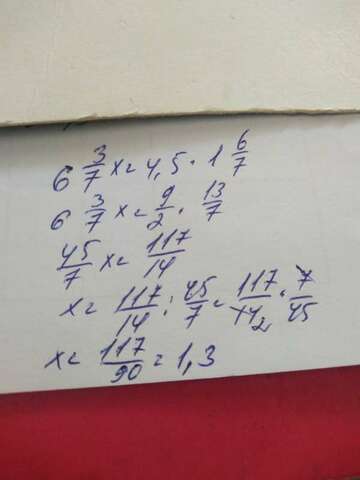 6 3/7 x = 4,5 · 1 6/7
6 3/7 x = 9/2 · 13/7
45/7 x = 117/14
x = 117/14 : 45/7 = 117/14 2 · 7/45
x = 117/90 = 1,3